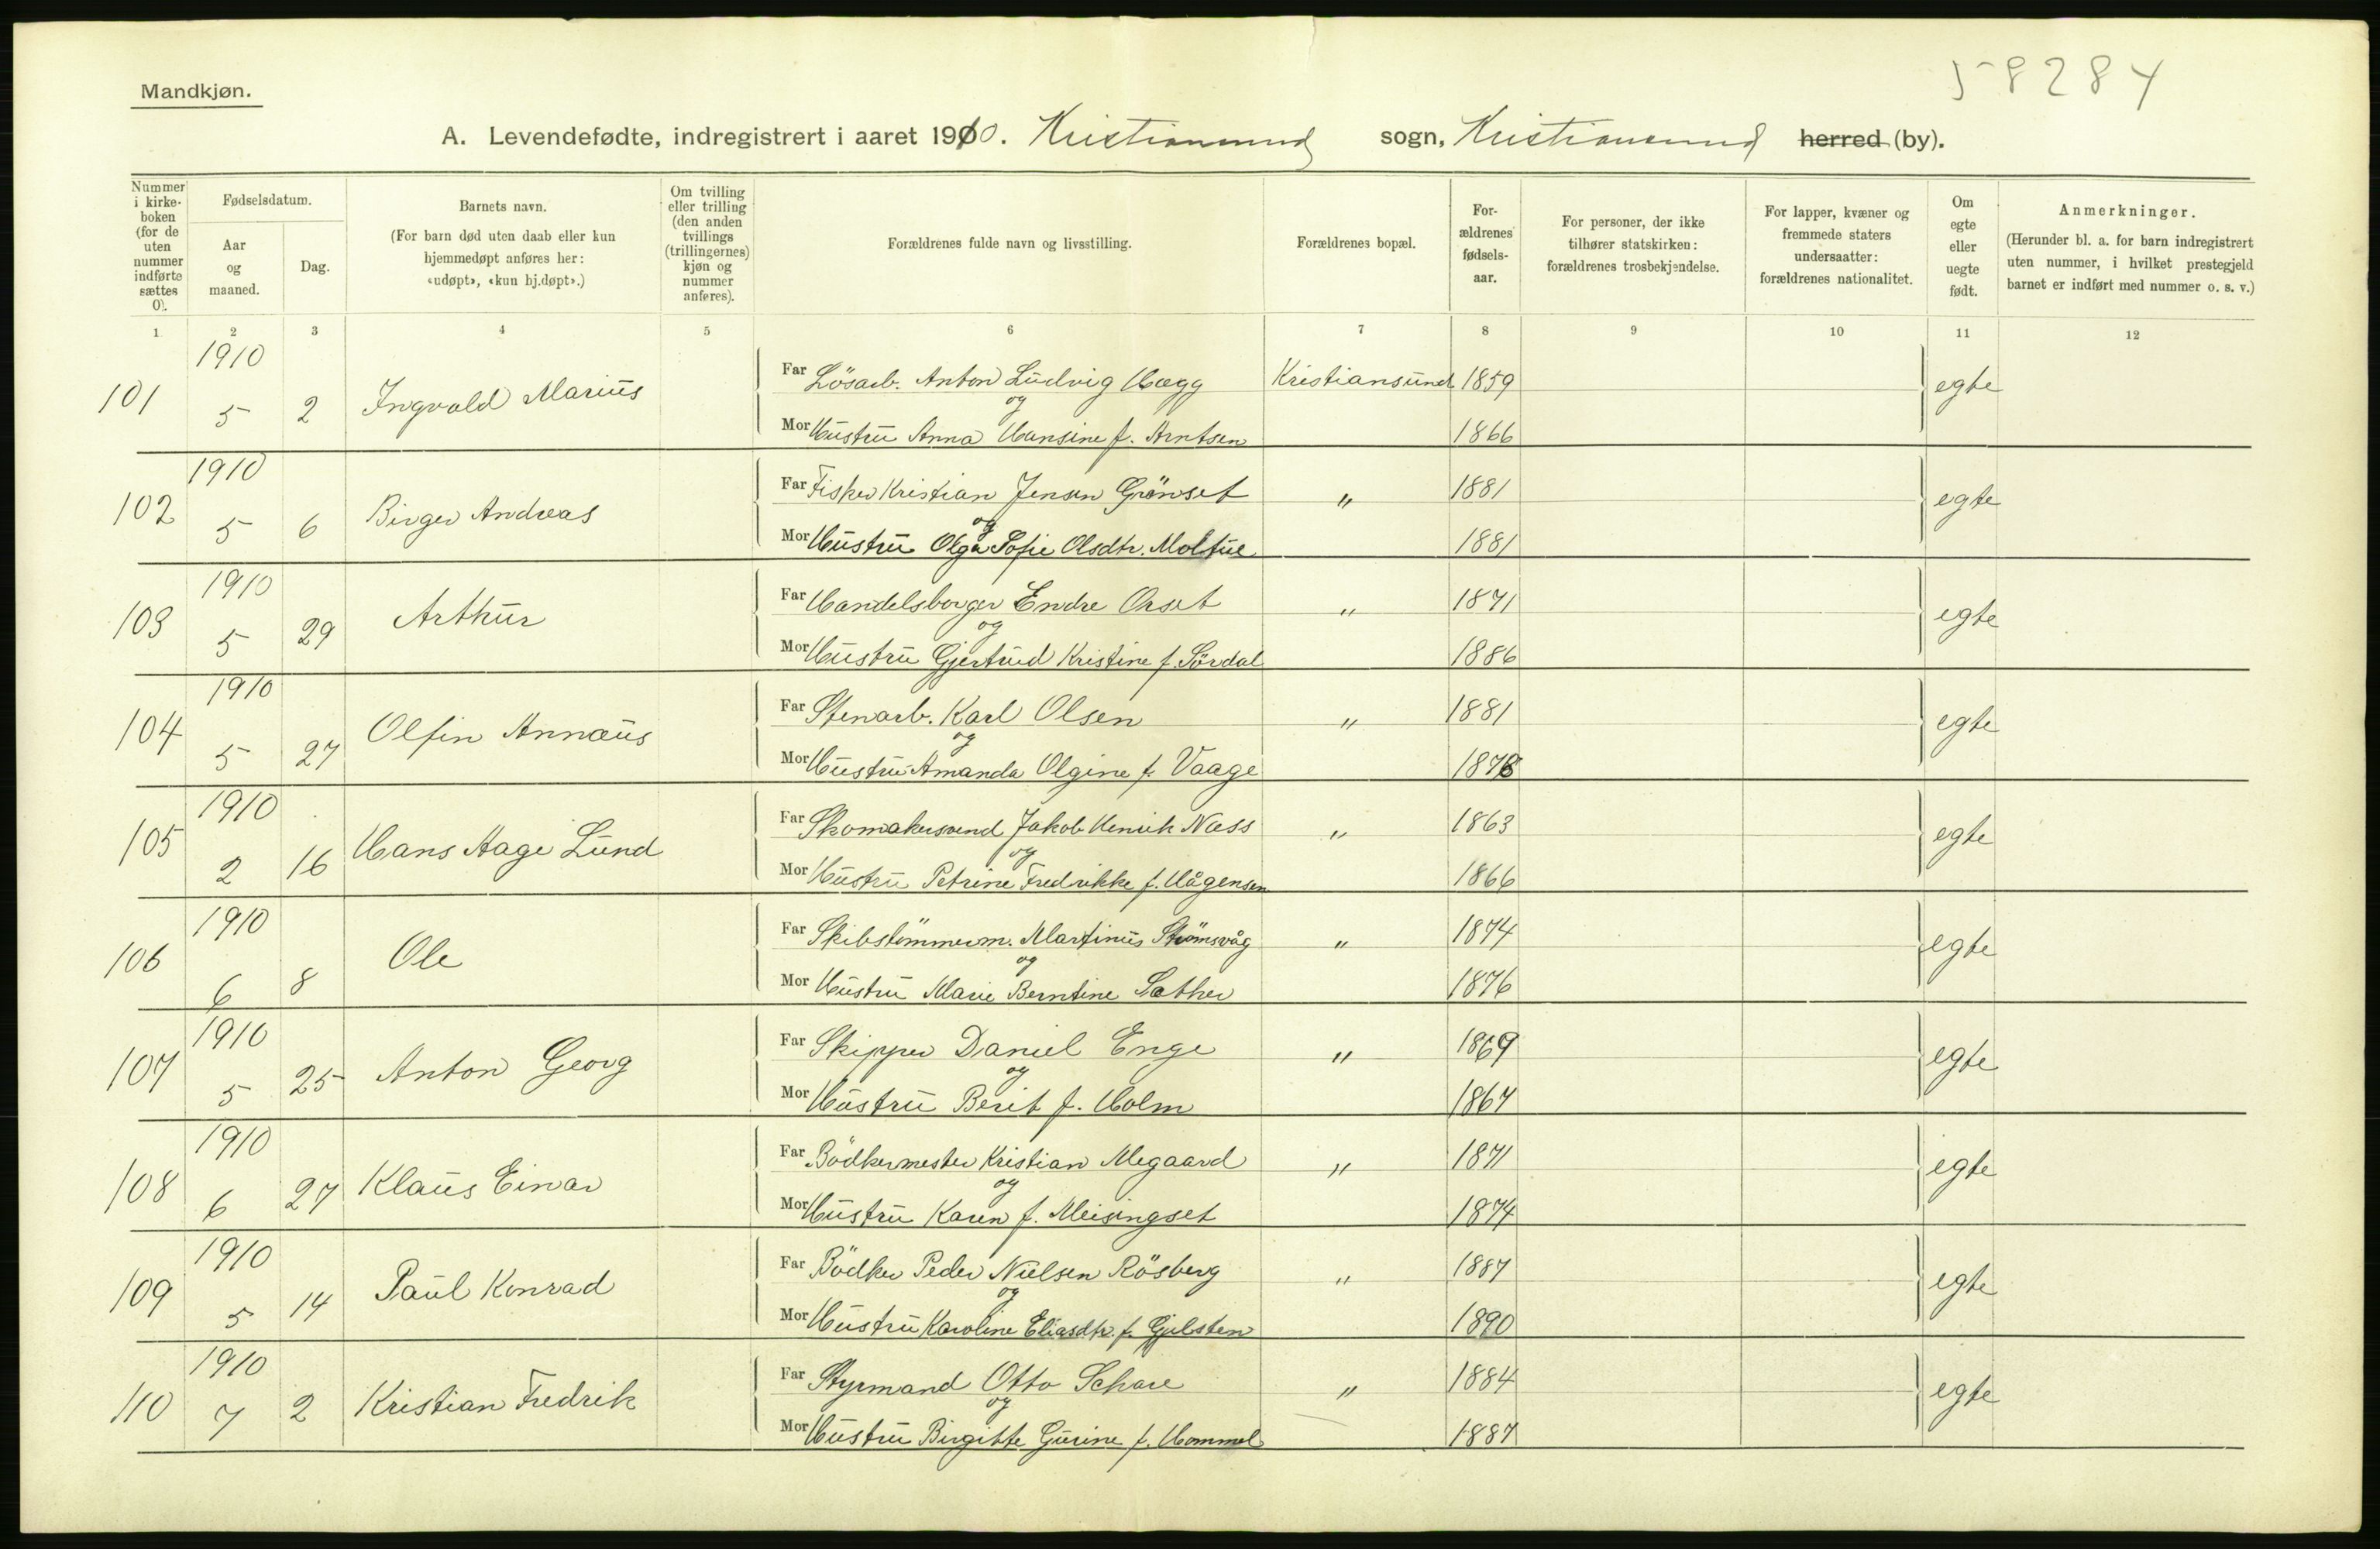 58284
Mandkjøn.
A. Levendefødte, indregistrert i aaret 1910. Kristiansund sogn, Kristiansund herred (by).
Nummer i kirkeboken (for de uten nummer indførte sættes 0).
Fødselsdatum.
Aar og maaned.
Dag.
Barnets navn.
(For barn død uten daab eller kun hjemmedøpt anføres her: «udøpt», «kun hj.døpt».)
Om tvilling eller trilling (den anden tvillings (trillingernes) kjøn og nummer anføres).
Forældrenes fulde navn og livsstilling.
Forældrenes bopæl.
Forældrenes fødselsaar.
For personer, der ikke tilhører statskirken: forældrenes trosbekjendelse.
For lapper, kvæner og fremmede staters undersaatter: forældrenes nationalitet.
Om egte eller uegte født.
Anmerkninger.
(Herunder bl. a. for barn indregistrert uten nummer, i hvilket prestegjeld barnet er indført med nummer o. s. v.)
1 2 3 4 5 6 7 8 9 10 11 12
101 1910 5 2 Ingvald Marius
Far Lösarb. Anton Ludvig Hagg Kristiansund 1859 egte
og
Mor Hustru Anna Hansine f. Arntsen 1866
102 1910 5 6 Birger Andreas
Far Fisker Kristian Jensen Grönset " 1881 egte
og
Mor Hustru Olga Sofie Olsdtr. Moltue 1881
103 1910 5 29 Arthur
Far Handelsborger Endre Orset " 1871 egte
og
Mor Hustru Gjertrud Kristine f. Sördal 1886
104 1910 5 27 Olfin Annæus
Far Stenarb. Karl Olsen " 1881 egte
og
Mor Hustru Amanda Olgine f. Vaage 1878
105 1910 2 16 Hans Aage Lund
Far Skomakersvend Jakob Henrik Næss " 1863 egte
og
Mor Hustru Petrine Fredrikke f. Hågensen 1866
106 1910 6 8 Ole
Far Skibstömmerm. Martinus Strömsvåg " 1874 egte
og
Mor Hustru Marie Berntine Sæther 1876
107 1910 5 25 Anton Georg
Far Skipper Daniel Enge " 1869 egte
og
Mor Hustru Berit f. Holm 1867
108 1910 6 27 Klaus Einar
Far Bödkermester Kristian Megaard " 1871 egte
og
Mor Hustru Karen f. Meisingset 1874
109 1910 5 14 Paul Konrad
Far Bödker Peder Nielsen Rösberg " 1887 egte
og
Mor Hustru Karoline Eliasdtr. f. Gjelsten 1890
110 1910 7 2 Kristian Fredrik
Far Styrmand Otto Schare " 1884 egte
og
Mor Hustru Birgitte Gurine f. Hommel 1887